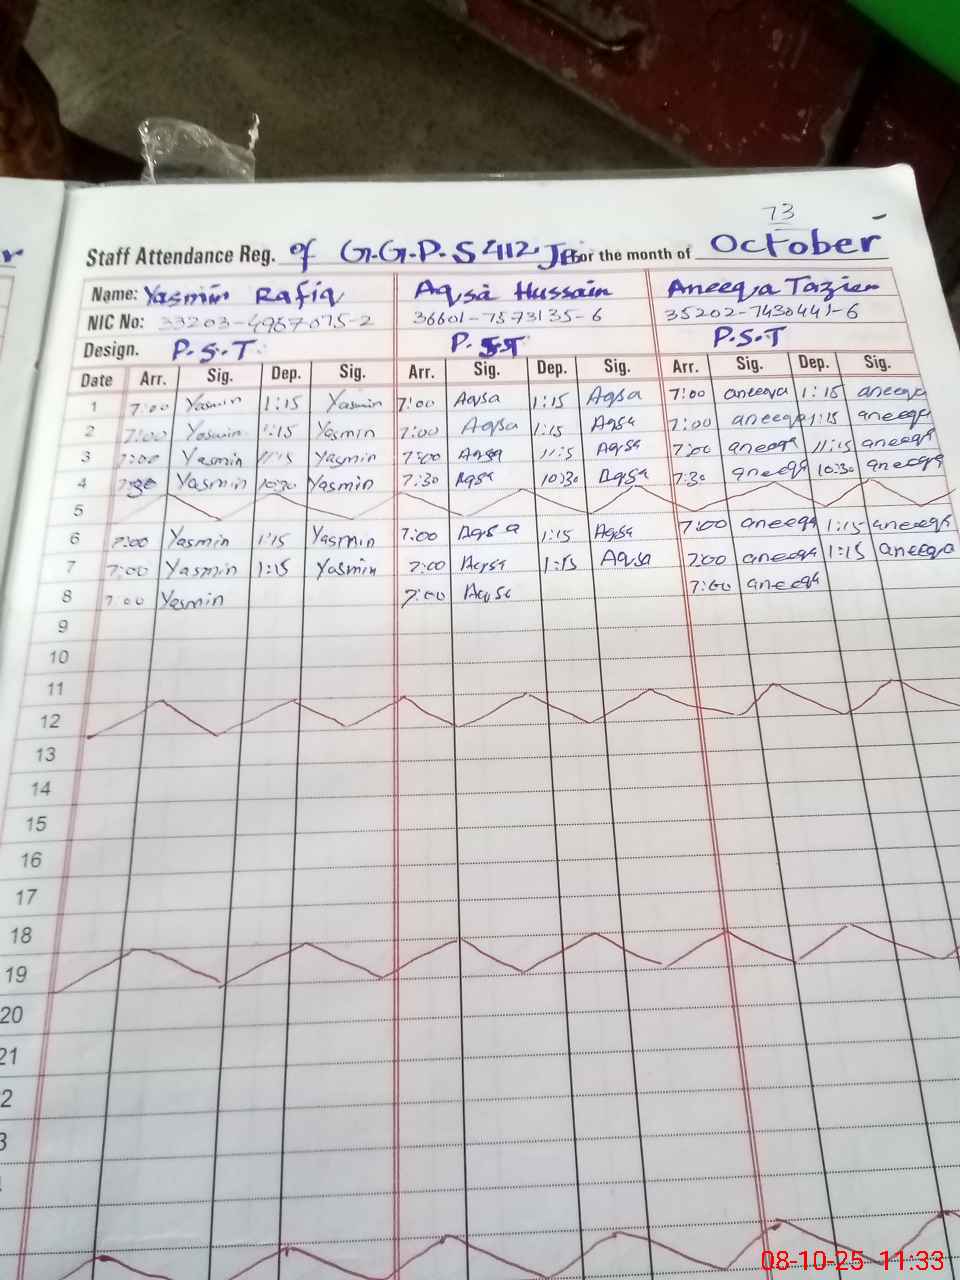 73
Staff Attendance Reg. of G.G.P.S 412 JB for the month of October
Name: Yasmin Rafiq Aqsa Hussain Aneeqa Tazien
NIC No: 33203-4967075-2 36601-7573135-6 35202-7430441-6
Design. P.S.T P.S.T P.S.T
Date Arr. Sig. Dep. Sig. Arr. Sig. Dep. Sig. Arr. Sig. Dep. Sig.
1 7:00 Yasmin 1:15 Yasmin 7:00 Aqsa 1:15 Aqsa 7:00 aneeqa 1:15 aneeqa
2 7:00 Yasmin 1:15 Yasmin 7:00 Aqsa 1:15 Aqsa 7:00 aneeqa 1:15 aneeqa
3 7:00 Yasmin 1:15 Yasmin 7:00 Aqsa 1:15 Aqsa 7:00 aneeqa 1:15 aneeqa
4 7:30 Yasmin 10:30 Yasmin 7:30 Aqsa 10:30 Aqsa 7:30 aneeqa 10:30 aneeqa
5
6 7:00 Yasmin 1:15 Yasmin 7:00 Aqsa 1:15 Aqsa 7:00 aneeqa 1:15 aneeqa
7 7:00 Yasmin 1:15 Yasmin 7:00 Aqsa 1:15 Aqsa 7:00 aneeqa 1:15 aneeqa
8 7:00 Yasmin 7:00 Aqsa 7:00 aneeqa
9
10
11
12
13
14
15
16
17
18
19
20
21
2
3
08-10-25 11:33